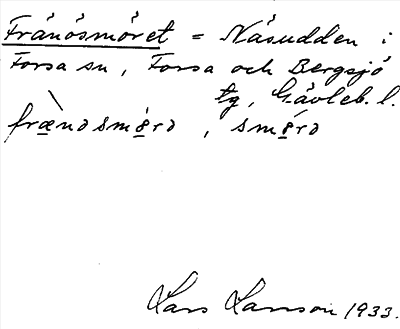 Fränösmöret = Näsudden i
Forsa sn, Forsa och Bergsjö
tg, Gävleb. l.
frænɔsmørɔ, smørɔ
Lars Larsson 1933.